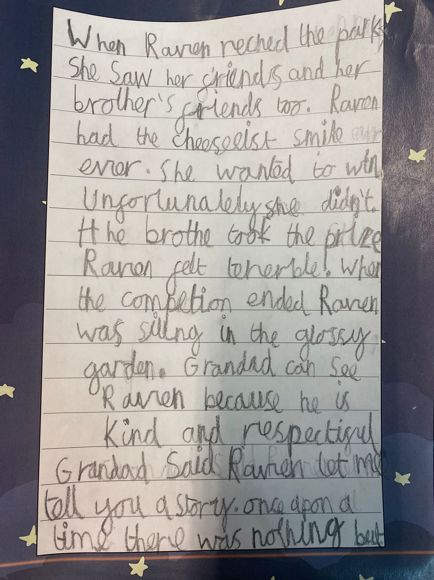 When Raven reched the park,
She saw her friends and her
brother's friends too. Raven
had the cheeseeist smile
ever. She wanted to win
Unfortunalely she didn't.
the brothe took the prize
Raven felt tererble! When
the competion ended Raven
was siting in the glossy
garden. Grandad can see
Raven because he is
kind and respectful
Grandad Said Raven let me
tell you a story. once apon a
time there was nothing but